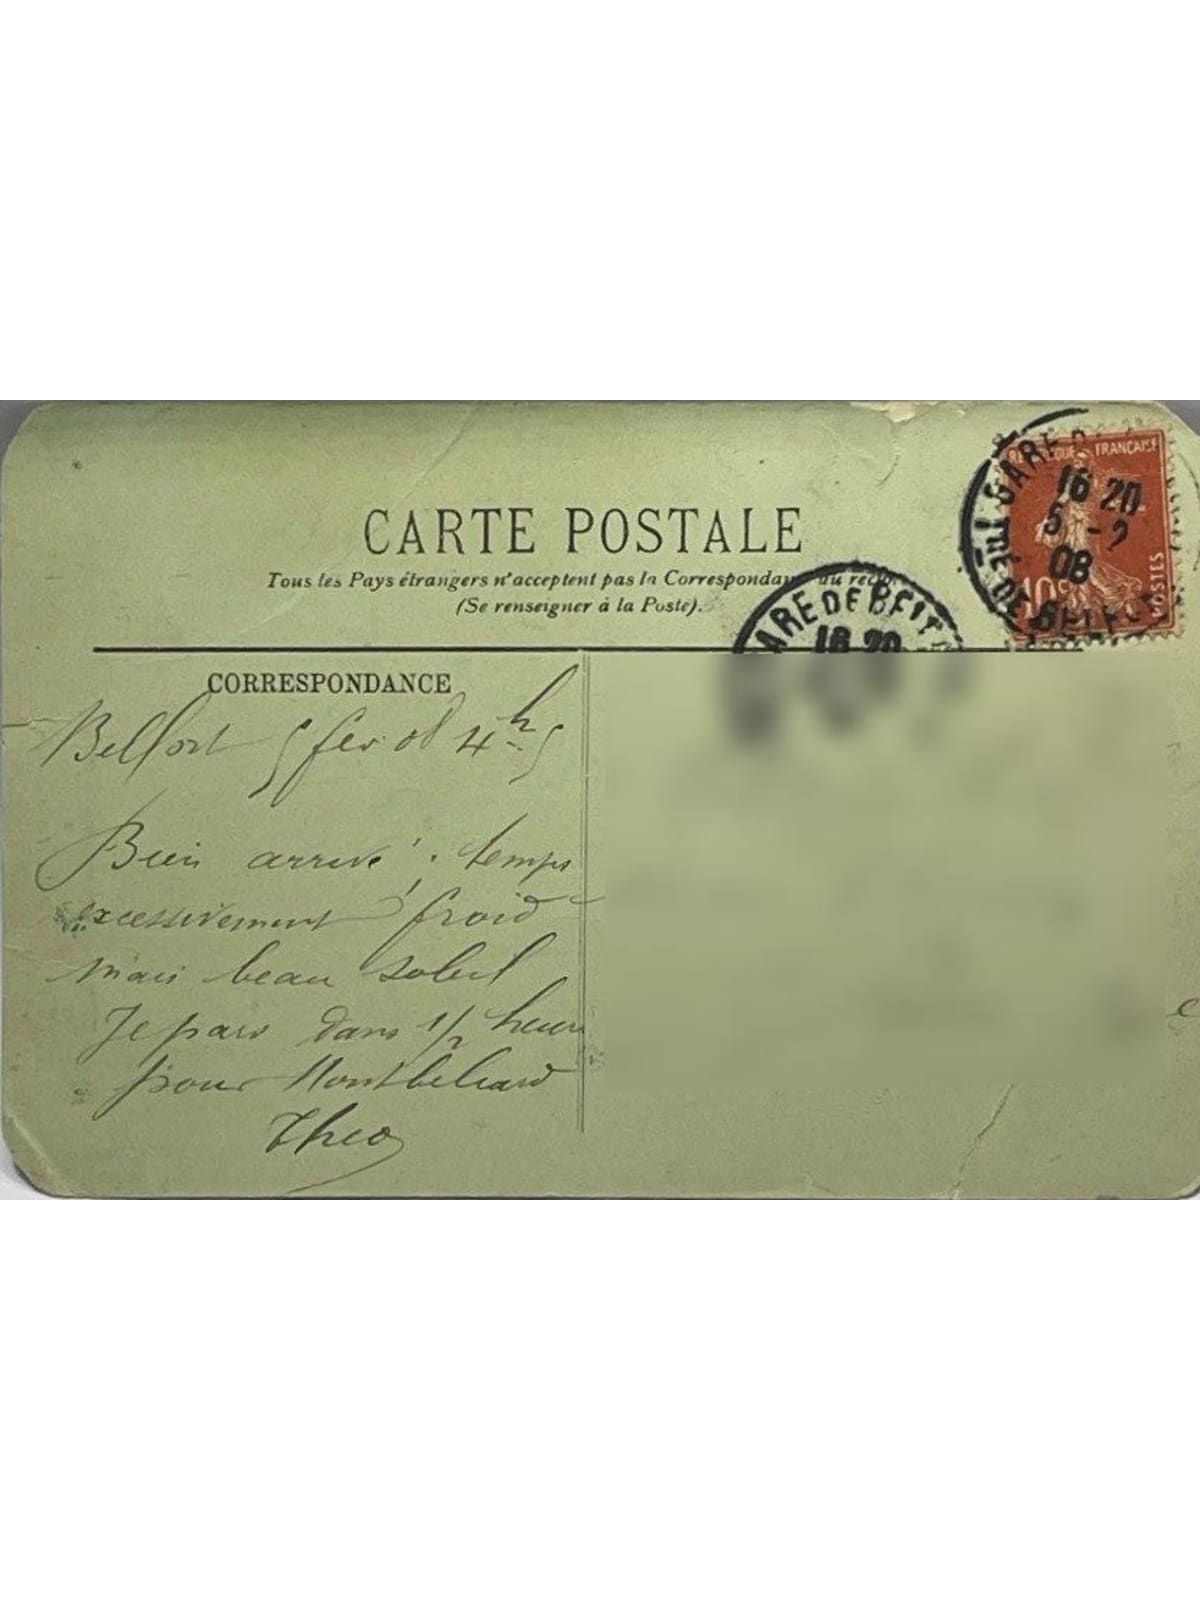 CARTE POSTALE
Tous les Pays étrangers n'acceptent pas la Correspondance au recto
(Se renseigner à la Poste).
RÉPUBLIQUE FRANÇAISE
POSTES
10c
GARE DE BELFORT
16 20
5 - 2
08
GARE DE BELFORT
16 20
CORRESPONDANCE
Belfort 5 fev. 08 4h 5
Bien arrivé ; temps
excessivement froid
mais beau soleil
Je pars dans 1/2 heure
pour Montbeliard
Theo